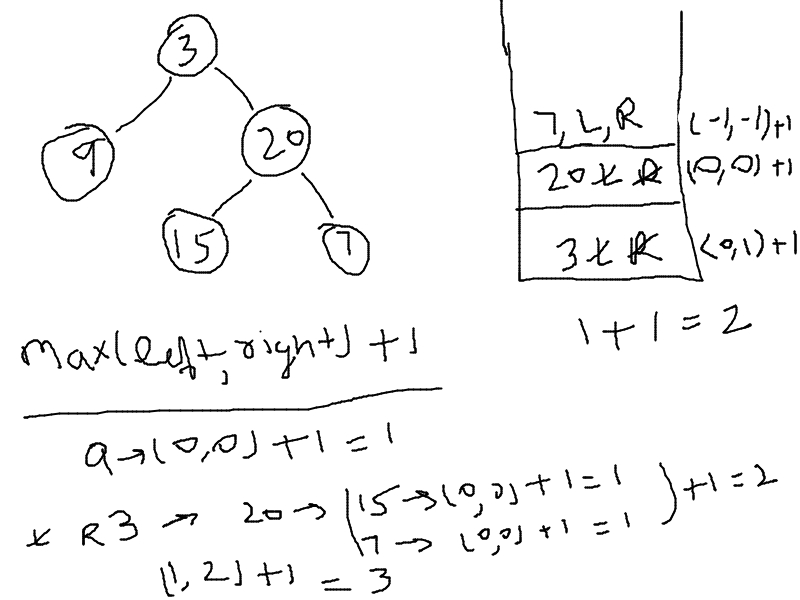 3
9
20
15
7
7, L, R (-1,-1)+1
20 L R (0,0)+1
3 L R (0,1)+1
1+1=2
max(left, right)+1
9→(0,0)+1=1
L R 3 → 20 → (15→(0,0)+1=1
7→(0,0)+1=1 )+1=2
(1,2)+1=3